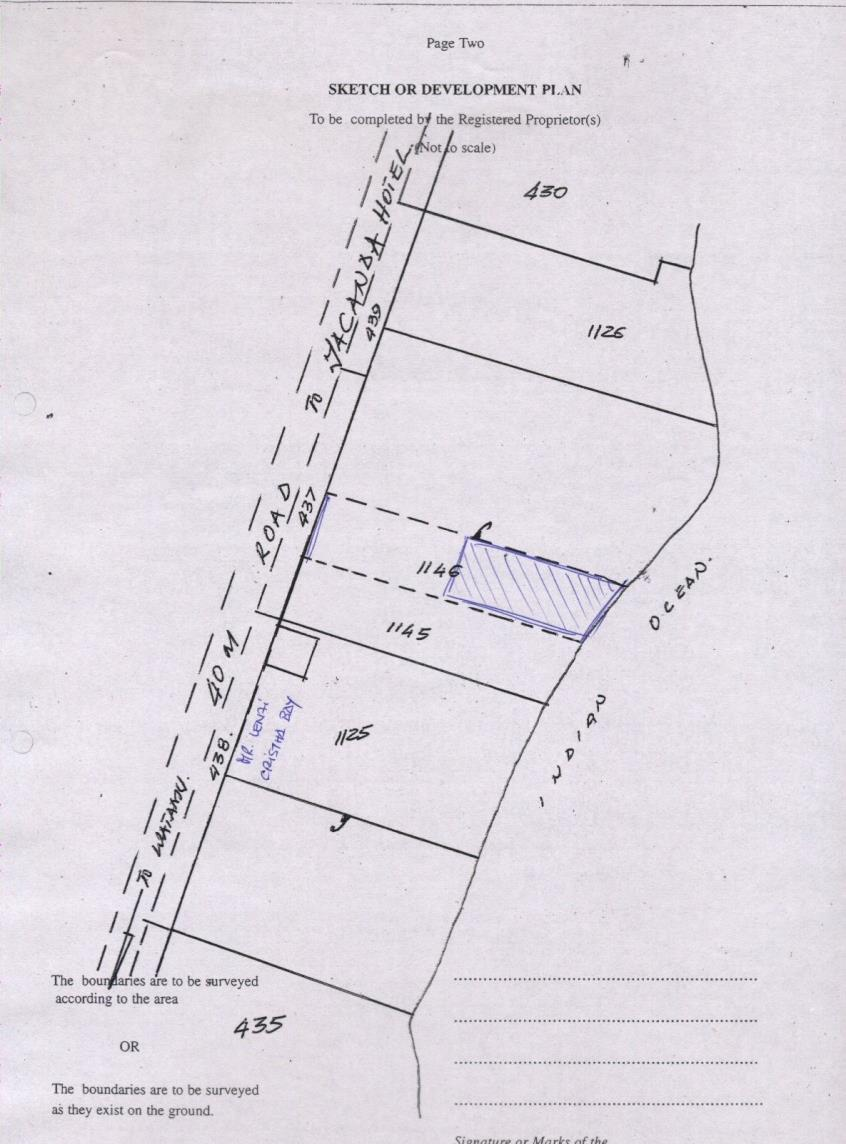 Page Two
SKETCH OR DEVELOPMENT PLAN
To be completed by the Registered Proprietor(s)
(Not to scale)
430
TO JACANDA HOTEL
439
1126
ROAD
437
1146
1145
INDIAN OCEAN.
40 M
438.
MR.
CRISTAL BAY
1125
TO WATAMU.
The boundaries are to be surveyed
according to the area
435
OR
The boundaries are to be surveyed
as they exist on the ground.
Signature or Marks of the